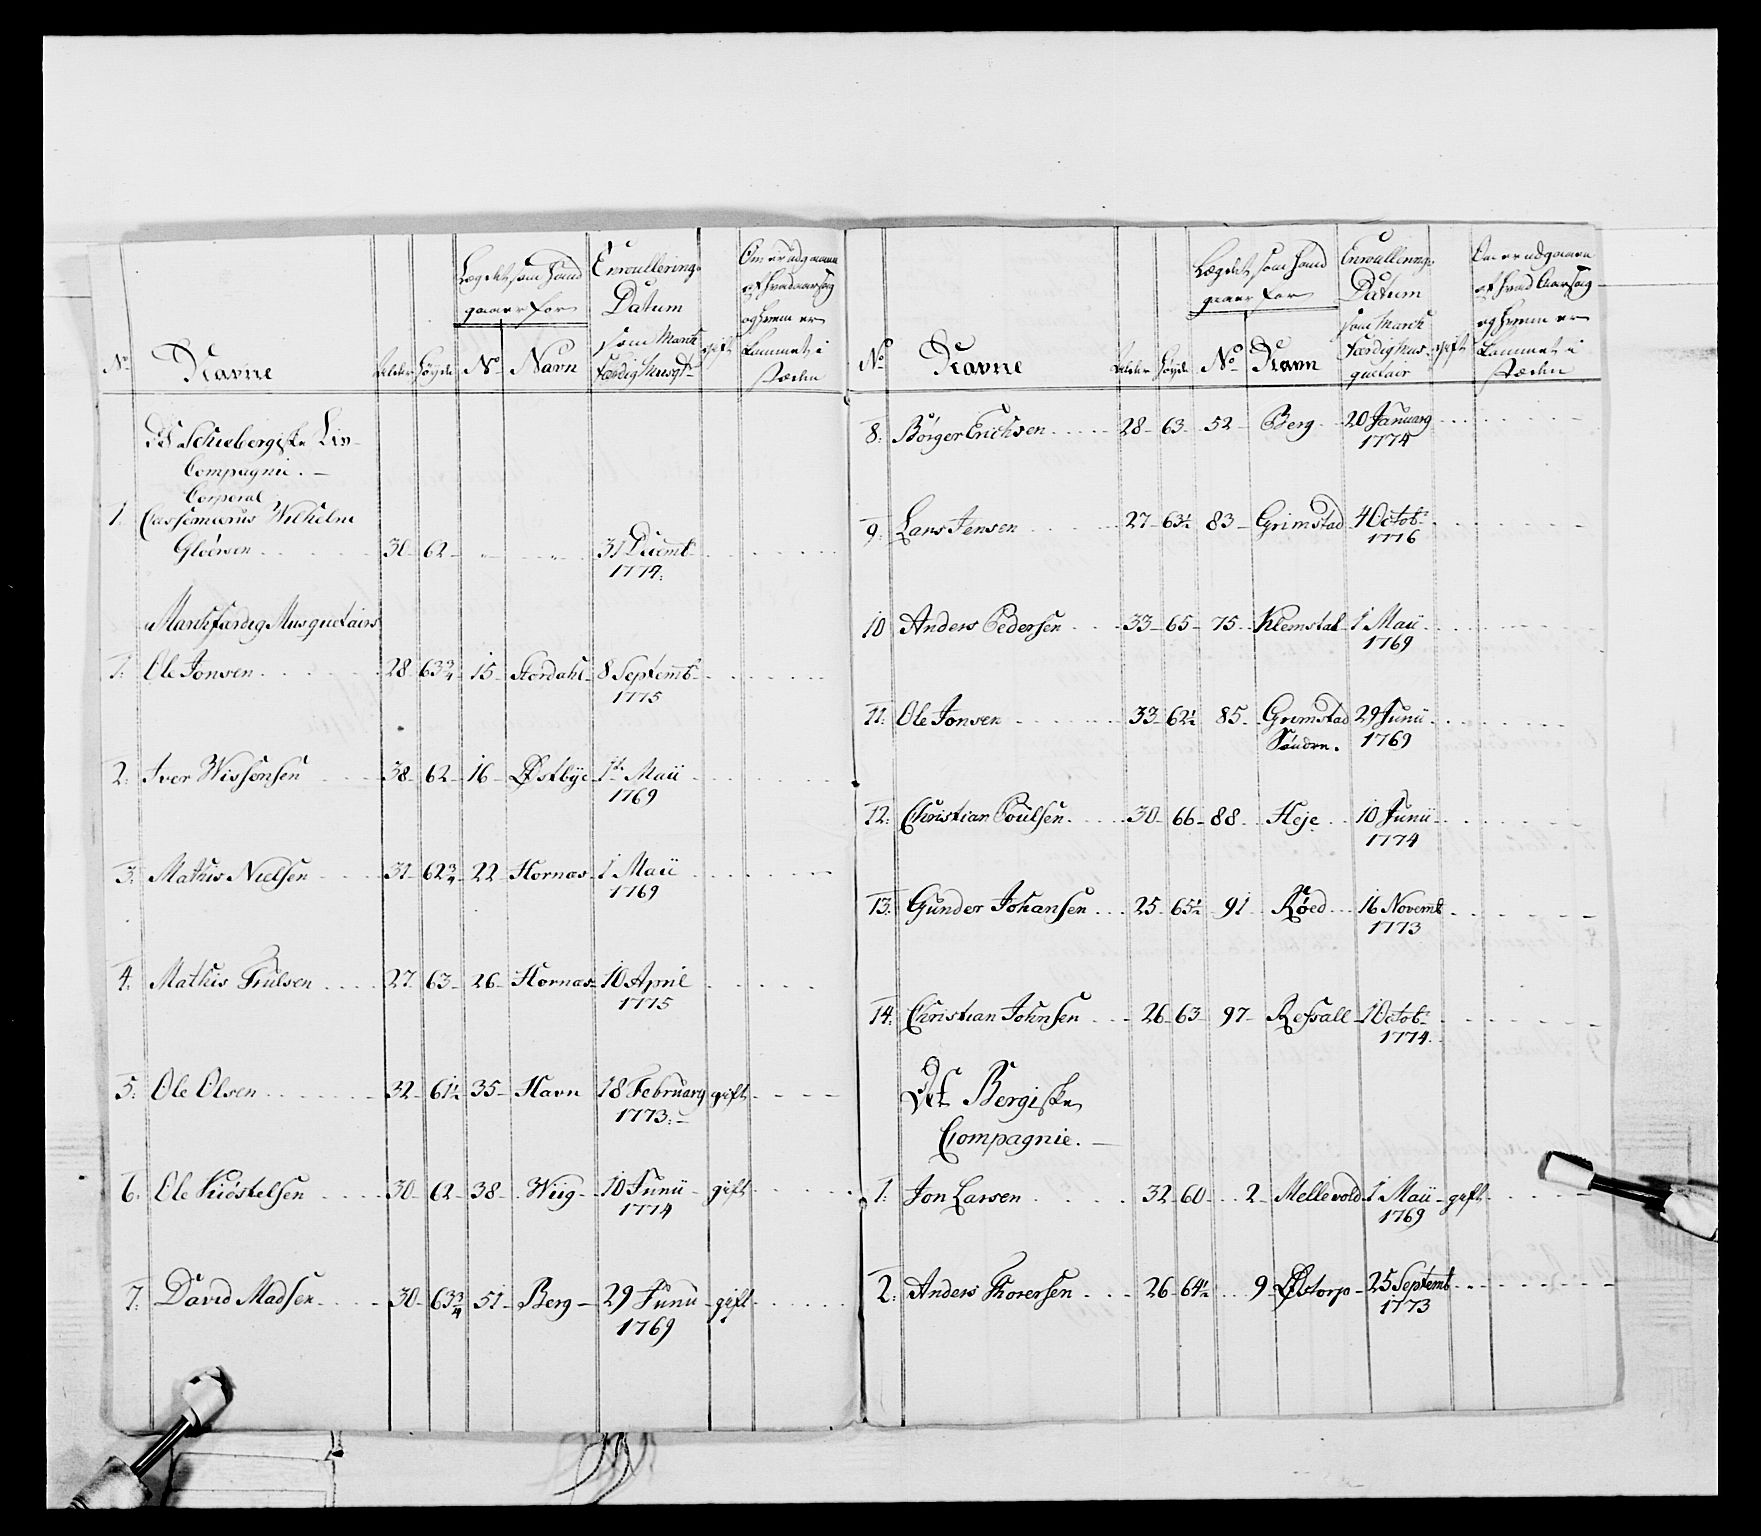 Lægdet som hand
gaaer for
Enroullerings
Datum
som March
færdig Musqt
Om er udgaaen
af hvad aarsag
og hvem er
kommet i
stæden
No Navne Alder Høyde No Navn gift
Det Schiebergiske Liv
Compagnie. —
Corporal
1. Cassemierus Wilhelm
Gloërsen 30 62 31 Decemb
1774.
Marchfærdig Musquetairs
1. Ole Jonsen 28 63 3/4 15 Stordahl 8 Septembr
1775
2. Iver Wissensen 38 62 16 Østbye 1te Maii
1769
3. Mathis Nielsen 31 62 3/4 22 Hornæs 1 Maii
1769
4. Mathis Trulsen 27 63 26 Hornæs 10 April
1775
5. Ole Olsen 32 61 1/2 35 Havn 18 February gift
1773. —
6. Ole Kiøstelsen 30 62 38 Wiig 10 Junii gift
1774
7. David Madsen 30 63 3/4 51 Berg 29 Junii gift
1769
Lægdet som hand
gaaer for
Enroullerings
Datum
som March
færdig Mus-
quetair
Om er udgaaen
af hvad Aarsag
og hvem er
kommet i
stæden
No Navne Alder Høyde No Navn gift
8. Børger Erichsen 28 63 52 Berg 20 January
1774
9. Lars Jensen 27 63 1/2 83 Grimstad 4 Octobr
1776
10 Anders Pedersen 33 65 75 Klemstal 1 Maii
1769
11. Ole Jonsen 33 62 1/2 85 Gremstad 29 Junii
Søndre. 1769
12. Christian Poulsen 30 66 88 Heje 10 Junii
1774
13. Gunder Johansen 25 65 1/2 91 Røed 16 Novemb
1773
14. Christian Johnsen 26 63 97 Refsall 1 Octobr
1774.
Det Bergiske
Compagnie. —
1. Jon Larsen 32 60 2 Mellevold 1 Maii gift
1769
2. Anders Thoversen 26 64 1/2 9 Østorp 25 Septemb
1773